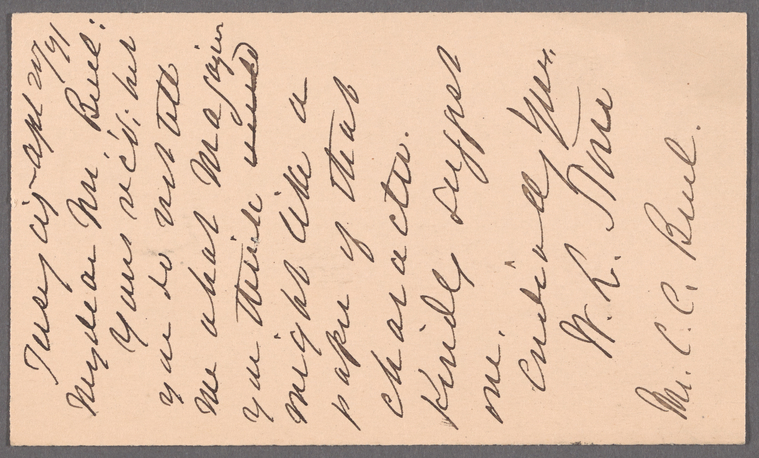 Jersey City Apl 20/91
My dear Mr. Buel:
Yours rec'd; but
you do not tell
me what Magazine
you think
might like a
paper of that
character.
Kindly suggest
me.
Cordially Yours,
W. L.
Mr. C. C. Buel.